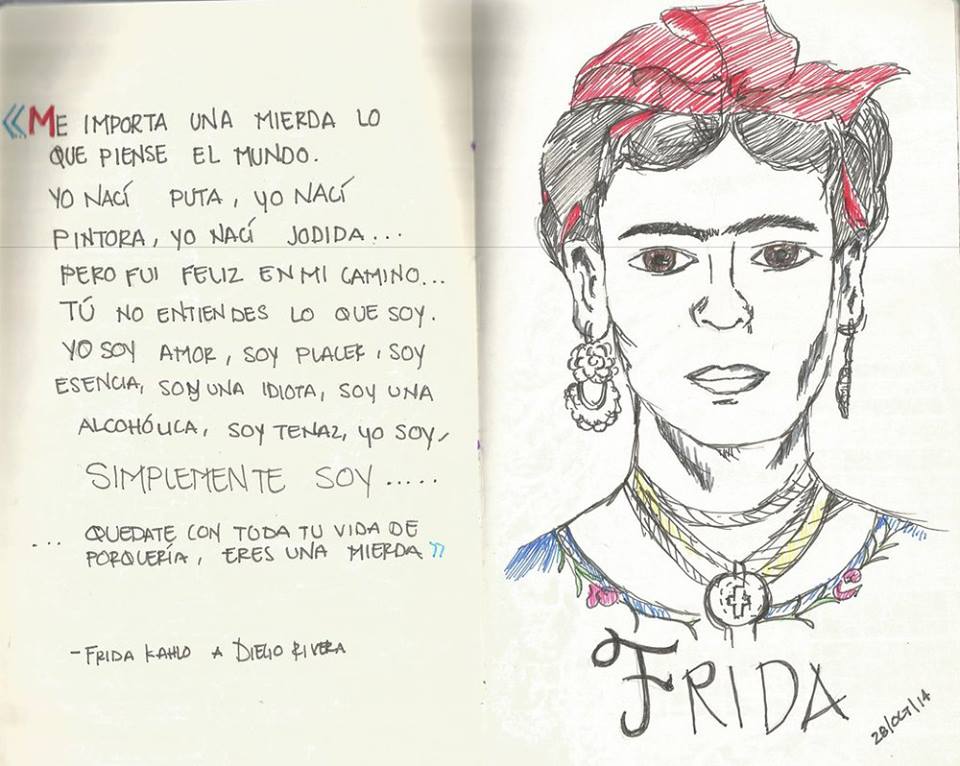 «ME IMPORTA UNA MIERDA LO
QUE PIENSE EL MUNDO.
YO NACÍ PUTA, YO NACÍ
PINTORA, YO NACÍ JODIDA...
PERO FUI FELIZ EN MI CAMINO...
TÚ NO ENTIENDES LO QUE SOY.
YO SOY AMOR, SOY PLACER, SOY
ESENCIA, SOY UNA IDIOTA, SOY UNA
ALCOHÓLICA, SOY TENAZ, YO SOY,
SIMPLEMENTE SOY.....
... QUEDATE CON TODA TU VIDA DE
PORQUERÍA, ERES UNA MIERDA»
- FRIDA KAHLO A DIEGO RIVERA
FRIDA
28/OCT/14